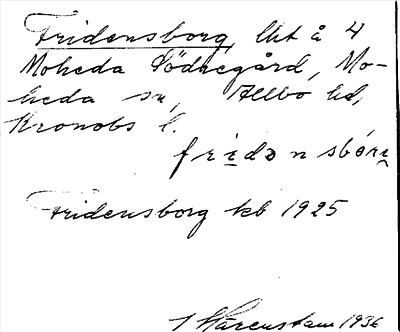 Fridensborg, lht å 4
Moheda Södregård, Mo-
heda sn, Allbo hd,
Kronobs l.
fridənsbórj
Fridensborg kb 1925
Härenstam 1936